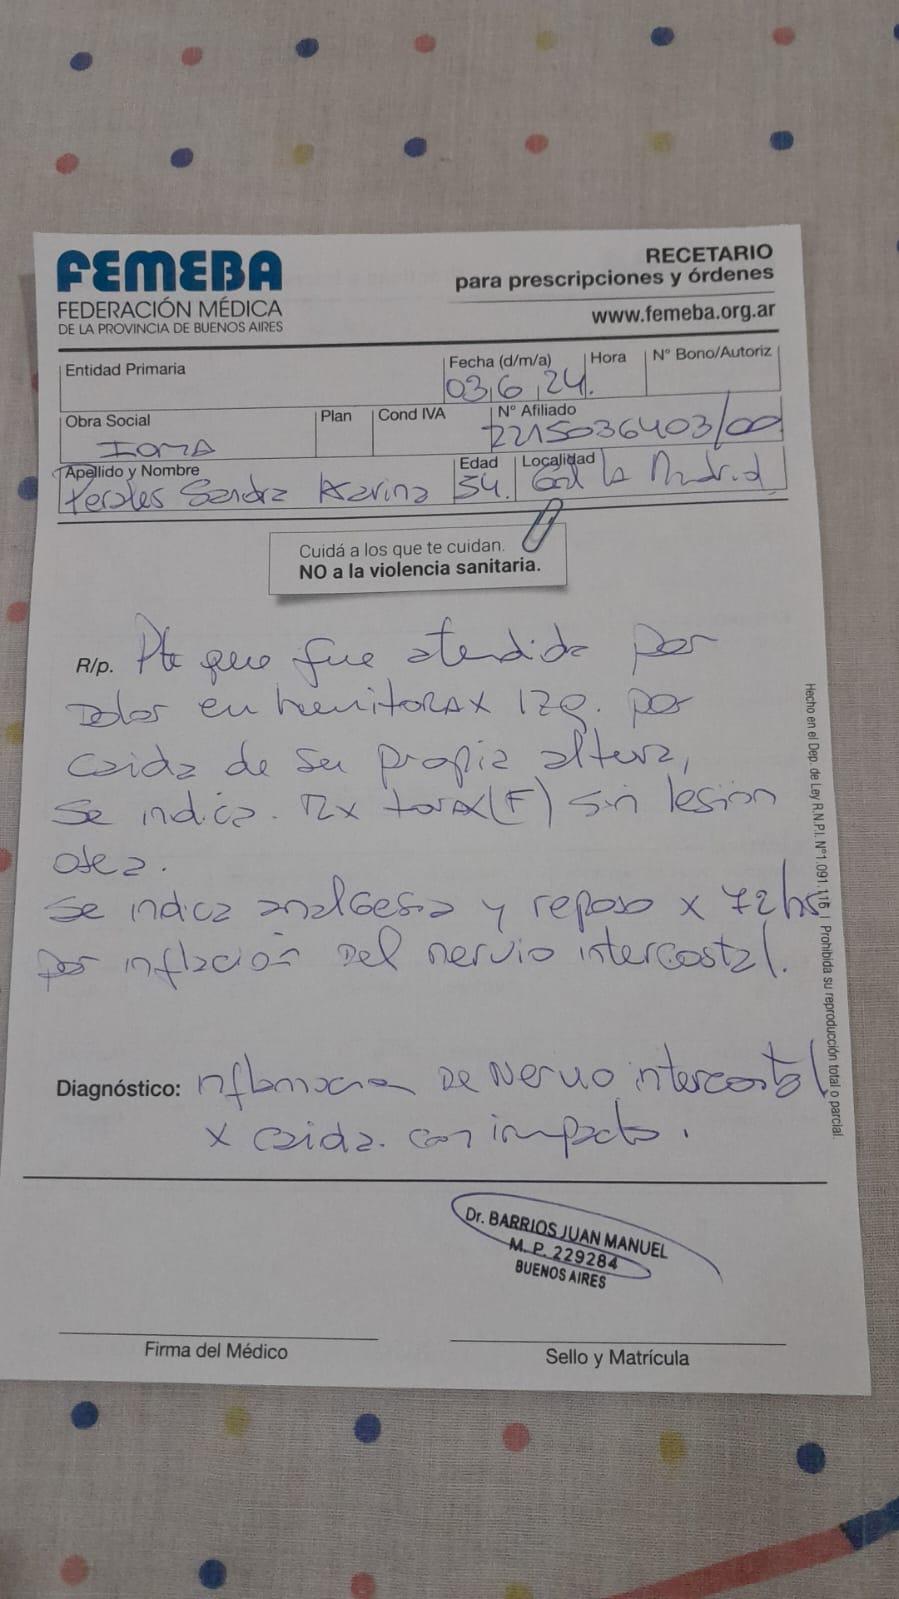 FEMEBA
FEDERACIÓN MÉDICA
DE LA PROVINCIA DE BUENOS AIRES
RECETARIO
para prescripciones y órdenes
www.femeba.org.ar
Entidad Primaria
Fecha (d/m/a) Hora N° Bono/Autoriz
03,6,24.
Obra Social Plan Cond IVA N° Afiliado
IOMA 2215036403/00
Apellido y Nombre Edad Localidad
Perales Sandra Karina 54. Gral la Madrid
Cuidá a los que te cuidan.
NO a la violencia sanitaria.
R/p. Pte que fue atendida por
Dolor en hemitorax izq. por
caida de su propia altura,
Se indica. Rx torax (F) sin lesion
osea.
Se indica analgesia y reposo x 72hs
por inflación del nervio intercostal.
Diagnóstico: Inflamacion De Nervio intercostal
x caida. con impacto.
Dr. BARRIOS JUAN MANUEL
M. P. 229284
BUENOS AIRES
Firma del Médico
Sello y Matrícula
Hecho en el Dep. de Ley R.N.P.I. N°1.091.115 | Prohibida su reproducción total o parcial.